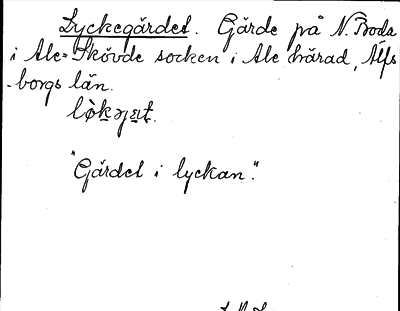 Lyckegärdet. Gärde på N. Boda
i Ale-Skövde socken i Ale härad, Älfs
-borgs län.
"Gärdet i lyckan".